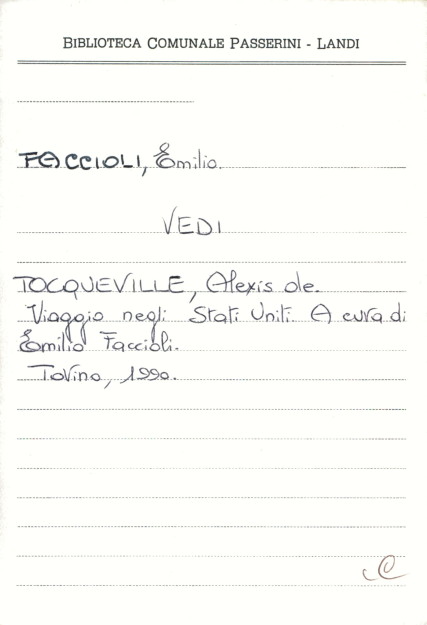 BIBLIOTECA COMUNALE PASSERINI - LANDI
FACCIOLI, Emilio.
VEDI
TOCQUEVILLE, Alexis de.
Viaggio negli Stati Uniti. A cura di
Emilio Faccioli.
Torino, 1990.